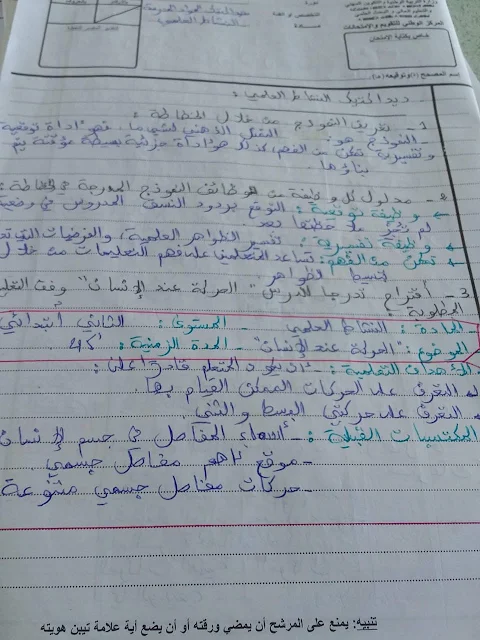 المركز الوطني للتقويم والامتحانات
خاص بكتابة الامتحان
اسم المصحح (ة) وتوقيعه (ها):
ديداكتيك النشاط العلمي:
1- تعريف النموذج من خلال الخطاطة:
- النموذج هو: التمثل الذهني لشيء ما، فهو أداة توقعية
وتفسيرية تمكن من الفهم، كذلك هو أداة جزئية بسيطة مؤقتة يتم
بناؤها.
2- مدلول كل وظيفة من وظائف النموذج المدرجة في الخطاطة:
← وظيفة توقعية: التوقع بردود النسق المدروس في وضعية
لم تتم ملاحظتها بعد.
← وظيفة تفسيرية: تفسير الظواهر العلمية، والفرضيات
← تمكن من الفهم: تساعد المتعلمين على فهم التعليمات من خلال
تبسيط الظواهر
3- أقترح تدرجا لدرس "الحركة عند الإنسان" وفق
المطلوبة:
المادة: النشاط العلمي - المستوى: الثاني ابتدائي
الموضوع: "الحركة عند الإنسان" - المدة الزمنية: 45د
الأهداف التعلمية: - أن يكون المتعلم قادرا على:
التعرف على الحركات الممكن القيام بها.
التعرف على حركتي البسط والثني.
المكتسبات القبلية: - أسماء المفاصل في جسم الإنسان
- موقع أهم مفاصل جسمي.
- حركات مفاصل جسمي متنوعة
تنبيه: يمنع على المرشح أن يمضي ورقته أو أن يضع أية علامة تبين هويته